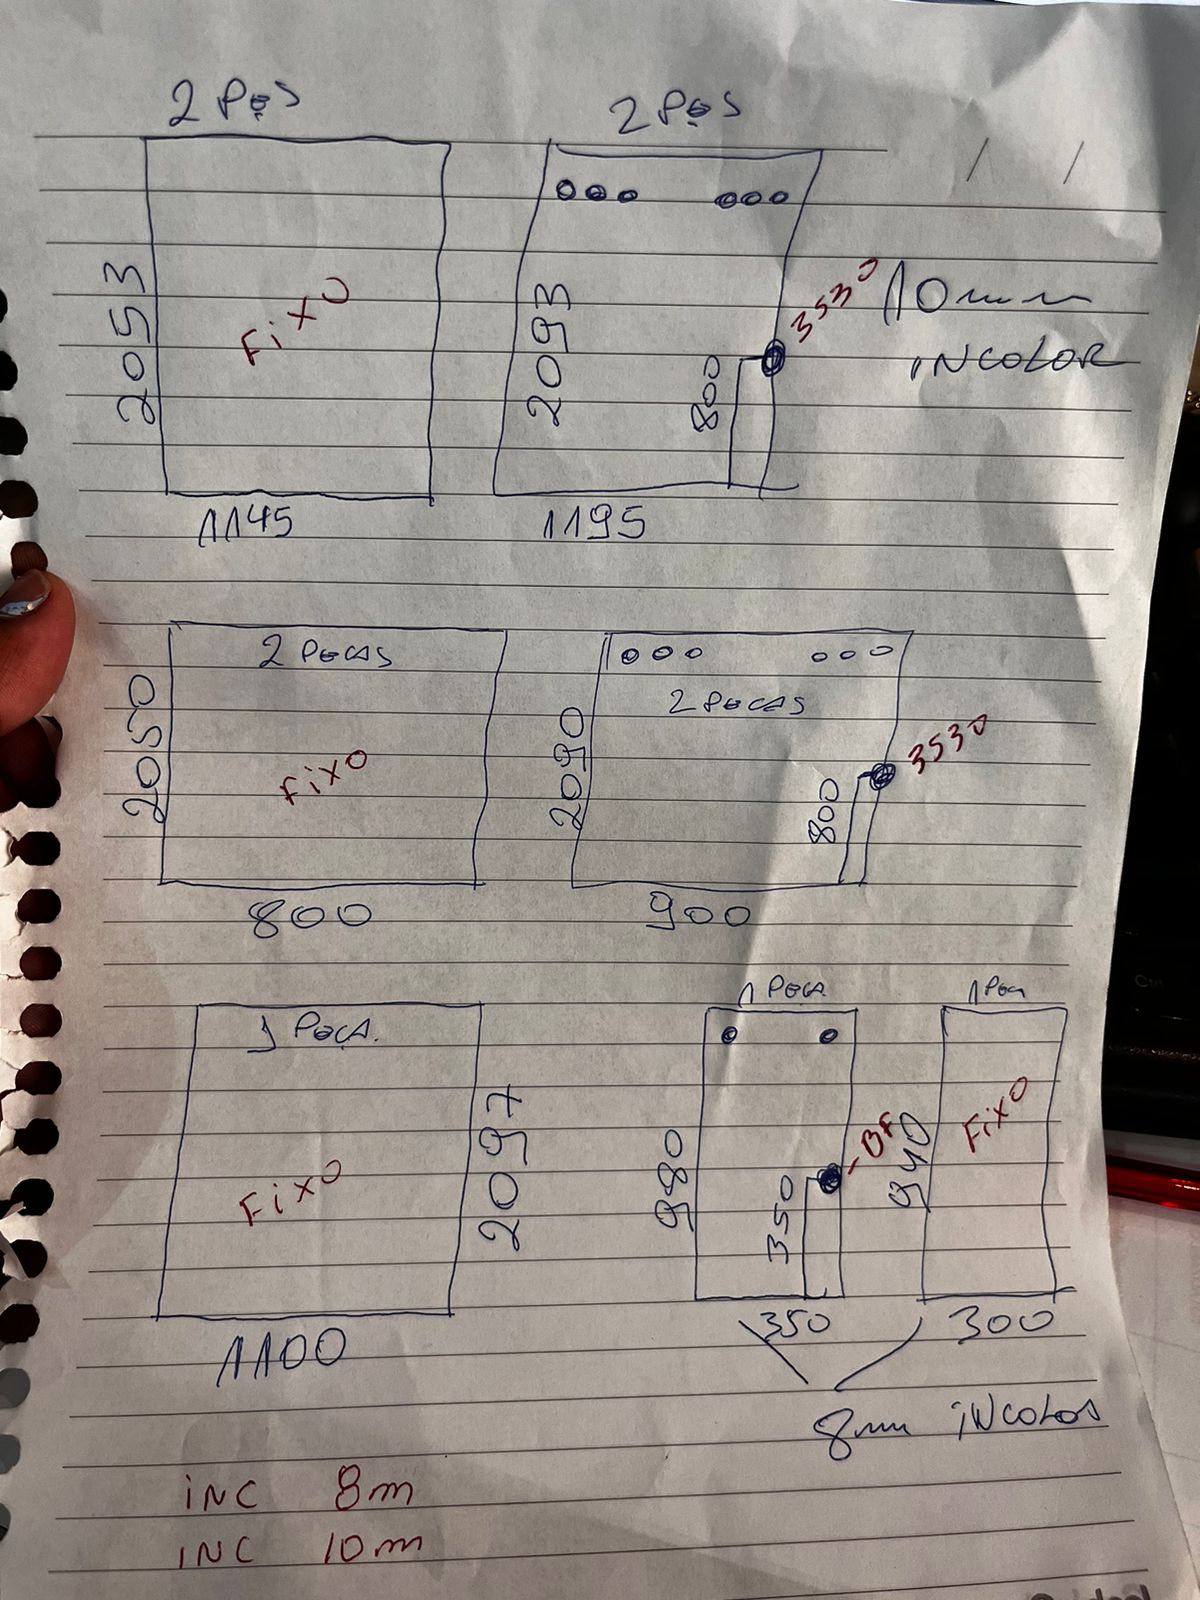 2 Pçs
2 Pçs
2053
Fixo
2093
800
3530
10mm
iNCOLOR
1145
1195
2 PeCAS
2050
Fixo
800
2 PeCAS
2090
800
3530
900
1 PeÇA.
Fixo
2097
1100
1 PeCA
980
350
-BF
350
1 PeCA
940
Fixo
300
8mm iNColor
iNC 8m
iNC 10m